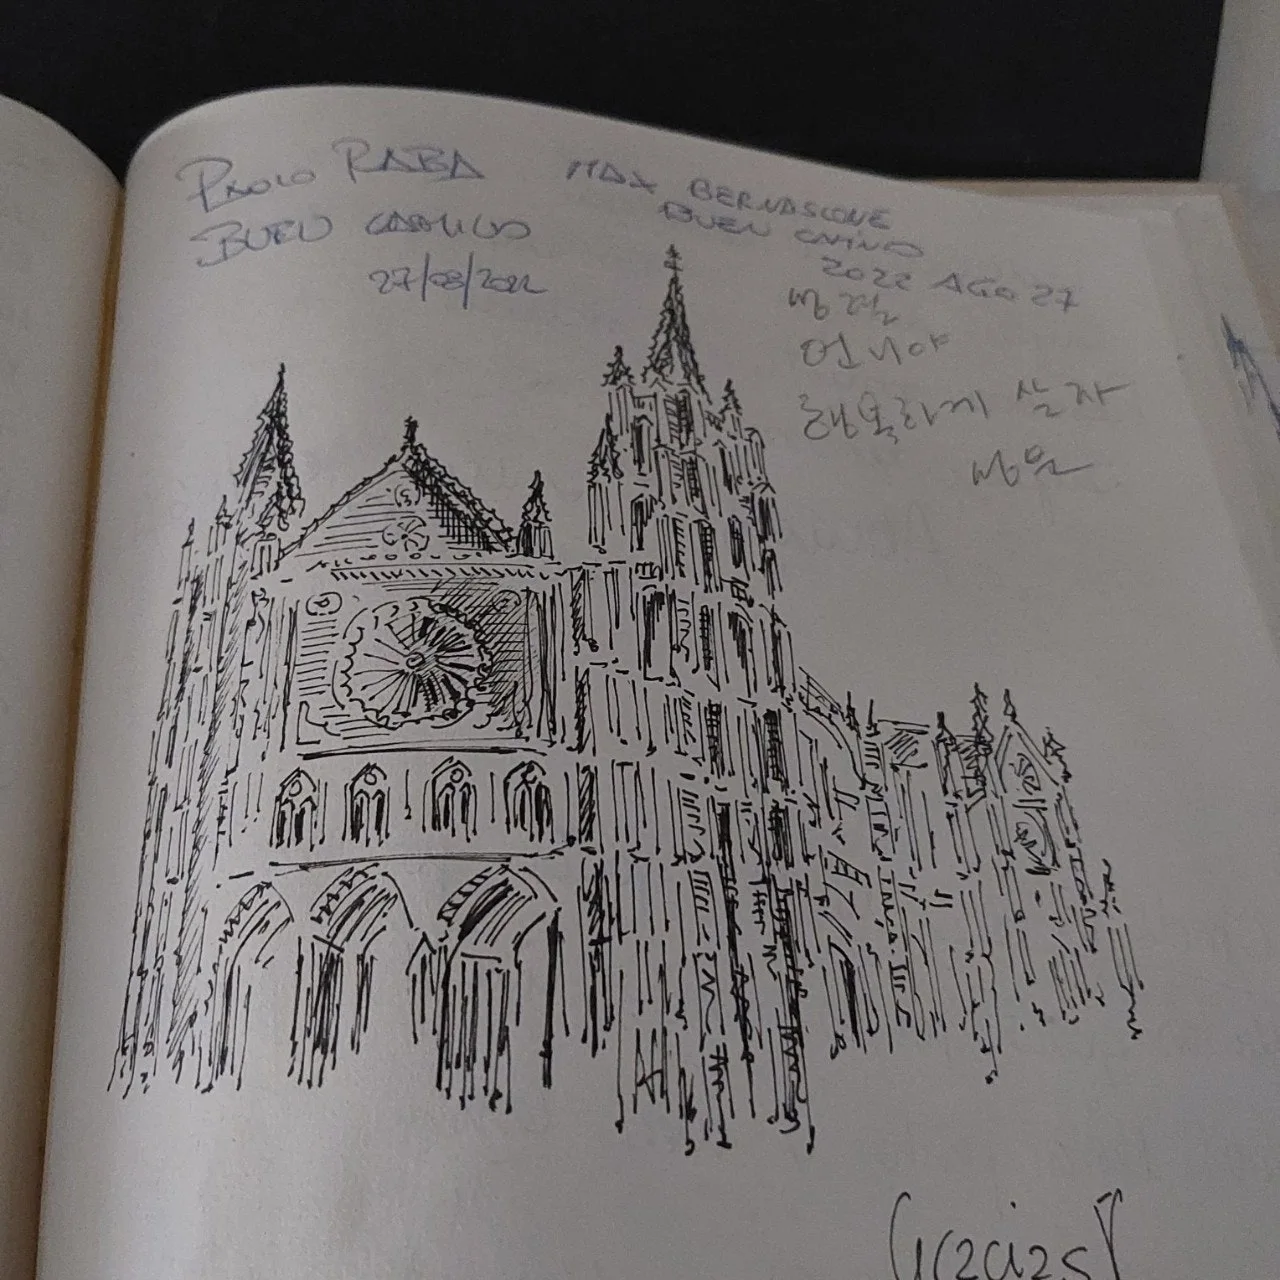 PAOLO RABA
BUEN CAMINO
27/08/2022
MAX BERNASCONE
BUEN CAMINO
2022 AGO 27
언니야
행복하게 살자